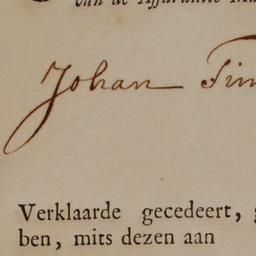 van de Assurantie Ma
Johan Tim
Verklaarde gecedeert,
ben, mits dezen aan